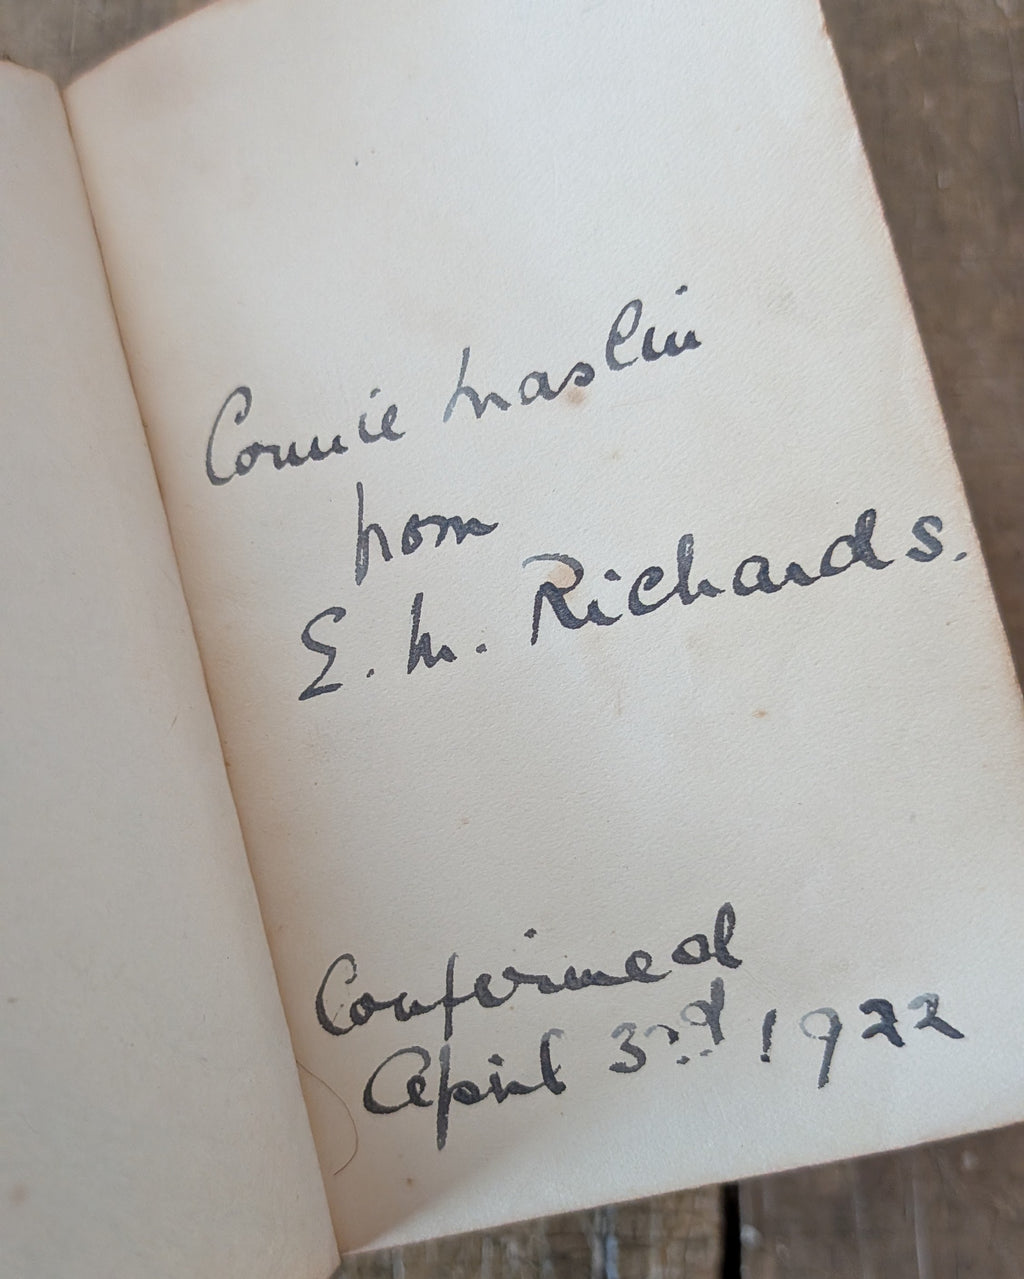 Connie Maslin
from
E. M. Richards.
Confirmed
April 3rd 1922